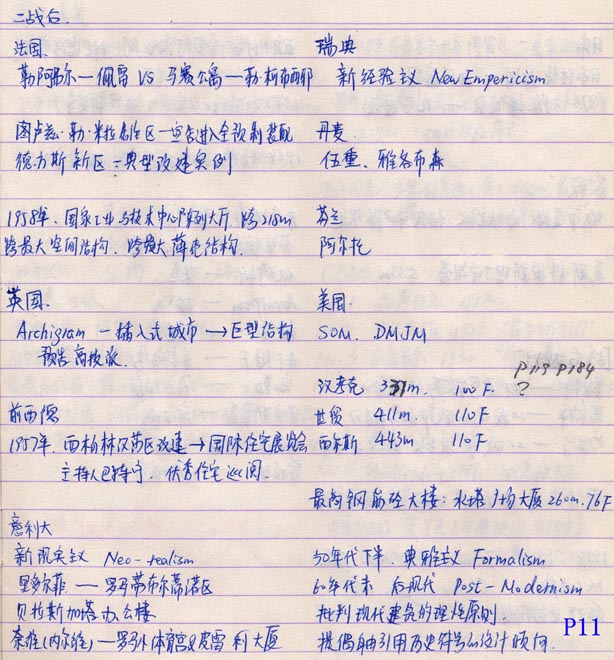 二战后.
法国.
勒阿弗尔—佩雷 VS 马赛公寓—勒·柯布西耶
图卢兹·勒·米拉居住区—宣告进入全预制装配
德方斯新区:典型改建实例
1958年. 国家工业与技术中心陈列大厅. 跨218m
跨最大空间结构. 跨最大薄壳结构.
英国.
Archigram —插入式城市→巨型结构
预告高技派.
前西德
1957年. 西柏林汉莎区改建→国际住宅展览会
主持人巴特宁. 优秀住宅巡阅.
意利大
新现实主义 Neo-realism
里多尔菲 — 罗马蒂布尔蒂诺区
贝拉斯加塔办公楼
奈维(内尔维)—罗马小体育宫及皮雷利大厦
瑞典
新经验主义 New Empericism
丹麦
伍重、雅各布森
芬兰
阿尔托
美国.
SOM. DMJM
P119 P184
汉考克 337m. 100F. ?
世贸 411m 110F
西尔斯 443m 110F
最高钢筋砼大楼:水塔广场大厦260m.76F
50年代下半. 典雅主义 Formalism
60年代末 后现代 Post-Modernism
批判现代建筑的理性原则.
提倡自由引用历史符号的设计倾向.
P11